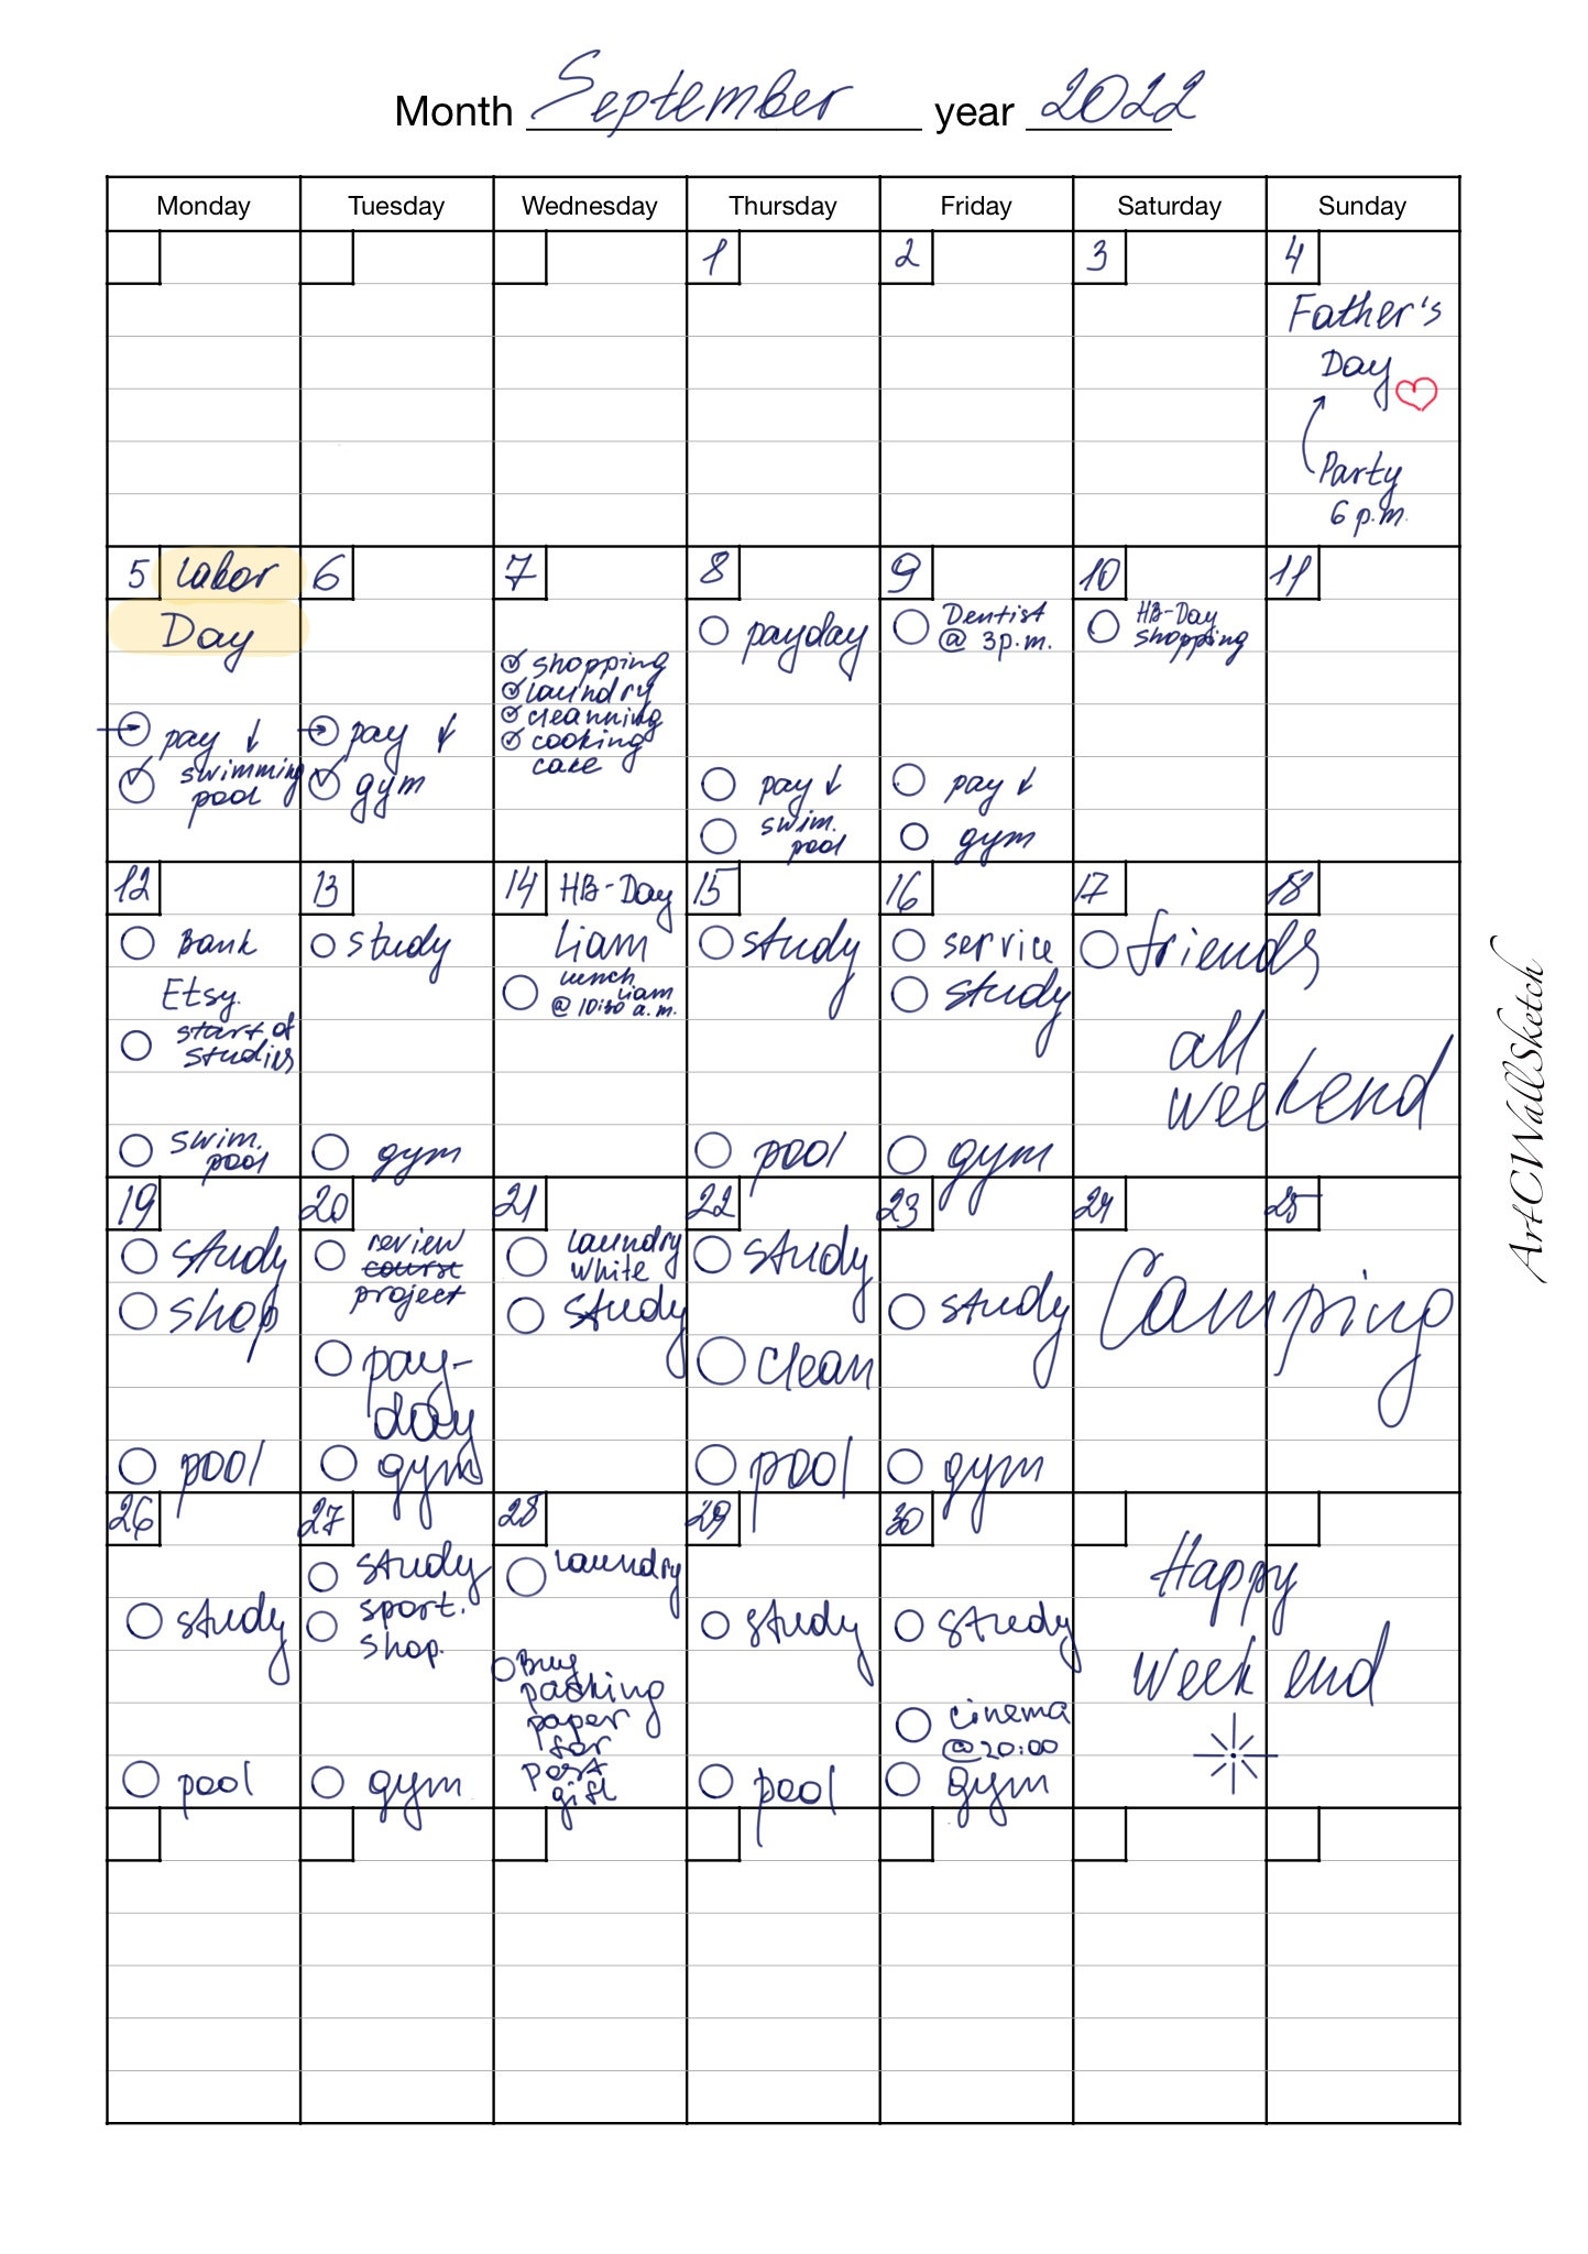 Month September year 2022
Monday Tuesday Wednesday Thursday Friday Saturday Sunday
1
2
3
4
Father's
Day
Party
6 p.m.
5 Labor
Day
pay
swimming
pool
6
pay
gym
7
shopping
laundry
cleanning
cooking
cake
8
payday
pay
swim.
pool
9
Dentist
@ 3p.m.
pay
gym
10
HB-Day
shopping
11
12
Bank
Etsy.
start of
studies
swim.
pool
13
study
gym
14 HB-Day
Liam
lunch
Liam
@ 10:30 a.m.
15
study
pool
16
service
study
gym
17
18
friends
all
weekend
19
study
shop
pool
20
review
course
project
pay-
day
gym
21
laundry
white
study
22
study
clean
pool
23
study
gym
24
25
Camping
26
study
pool
27
study
sport.
shop.
gym
28
laundry
Buy
packing
paper
for
post
gift
29
study
pool
30
study
cinema
@20:00
gym
Happy
week end
ArtCWallSketch